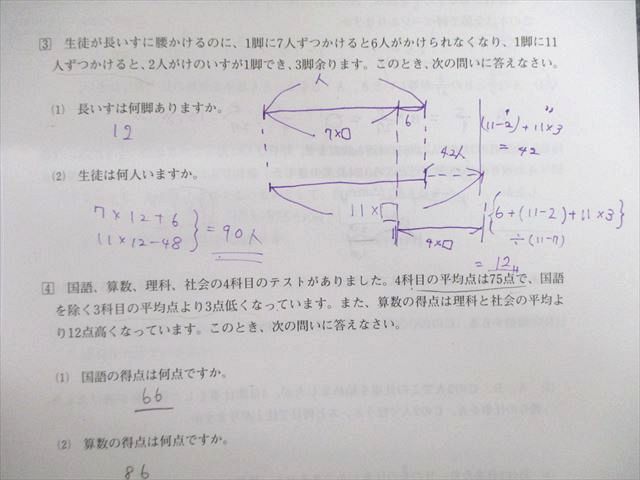 3 生徒が長いすに腰かけるのに、1脚に7人ずつかけると6人がかけられなくなり、1脚に11
人ずつかけると、2人がけのいすが1脚でき、3脚余ります。このとき、次の問いに答えなさい。
人
(1) 長いすは何脚ありますか。
12
7×□
6
(11-2)+11×3
= 42
42人
(2) 生徒は何人いますか。
7×12+6
11×12-48
= 90人
11×□
{6+(11-2)+11×3}
÷(11-7)
4×□
= 12
4 国語、算数、理科、社会の4科目のテストがありました。4科目の平均点は75点で、国語
を除く3科目の平均点より3点低くなっています。また、算数の得点は理科と社会の平均よ
り12点高くなっています。このとき、次の問いに答えなさい。
(1) 国語の得点は何点ですか。
66
(2) 算数の得点は何点ですか。
86